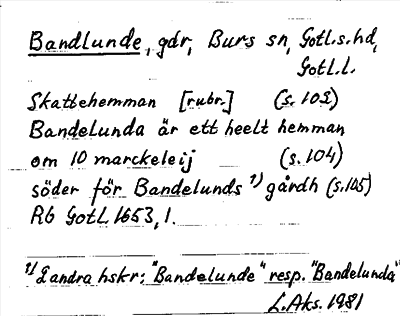 Bandlunde, gdr, Burs sn, Gotl.s.hd,
Gotl.l.
Skattehemman [rubr.] (s. 103)
Bandelunda är ett heelt hemman
om 10 marckeleij (s. 104)
söder för Bandelunds 1) gårdh (s. 105)
Rb Gotl 1653, 1.
1) I andra hskr: "Bandelunde" resp. "Bandelunda"
L.Aks. 1981